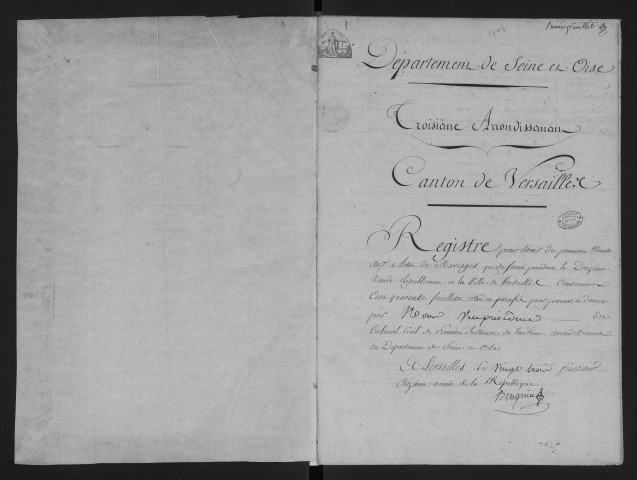 premier feuillet
Département de Seine et Oise
Troisième Arrondissement
Canton de Versailles
Registre pour servir de premiere Minute
aux Actes de Mariages qui se feront pendant la Douzième
Année Républicaine en la Ville de Versailles Contenant
Cent quarante feuillets cotés et paraphés par premier et dernier
par Nous Vice président du
Tribunal Civil de Première Instance du troisième arrondissement
du Département de Seine et Oise
A Versailles le Vingt trois fructidor
Onzième année de la République